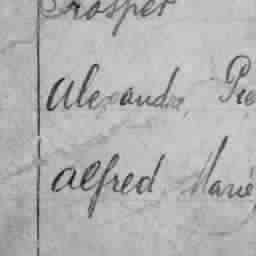 Prosper
Alexandre, Pie
Alfred Marie